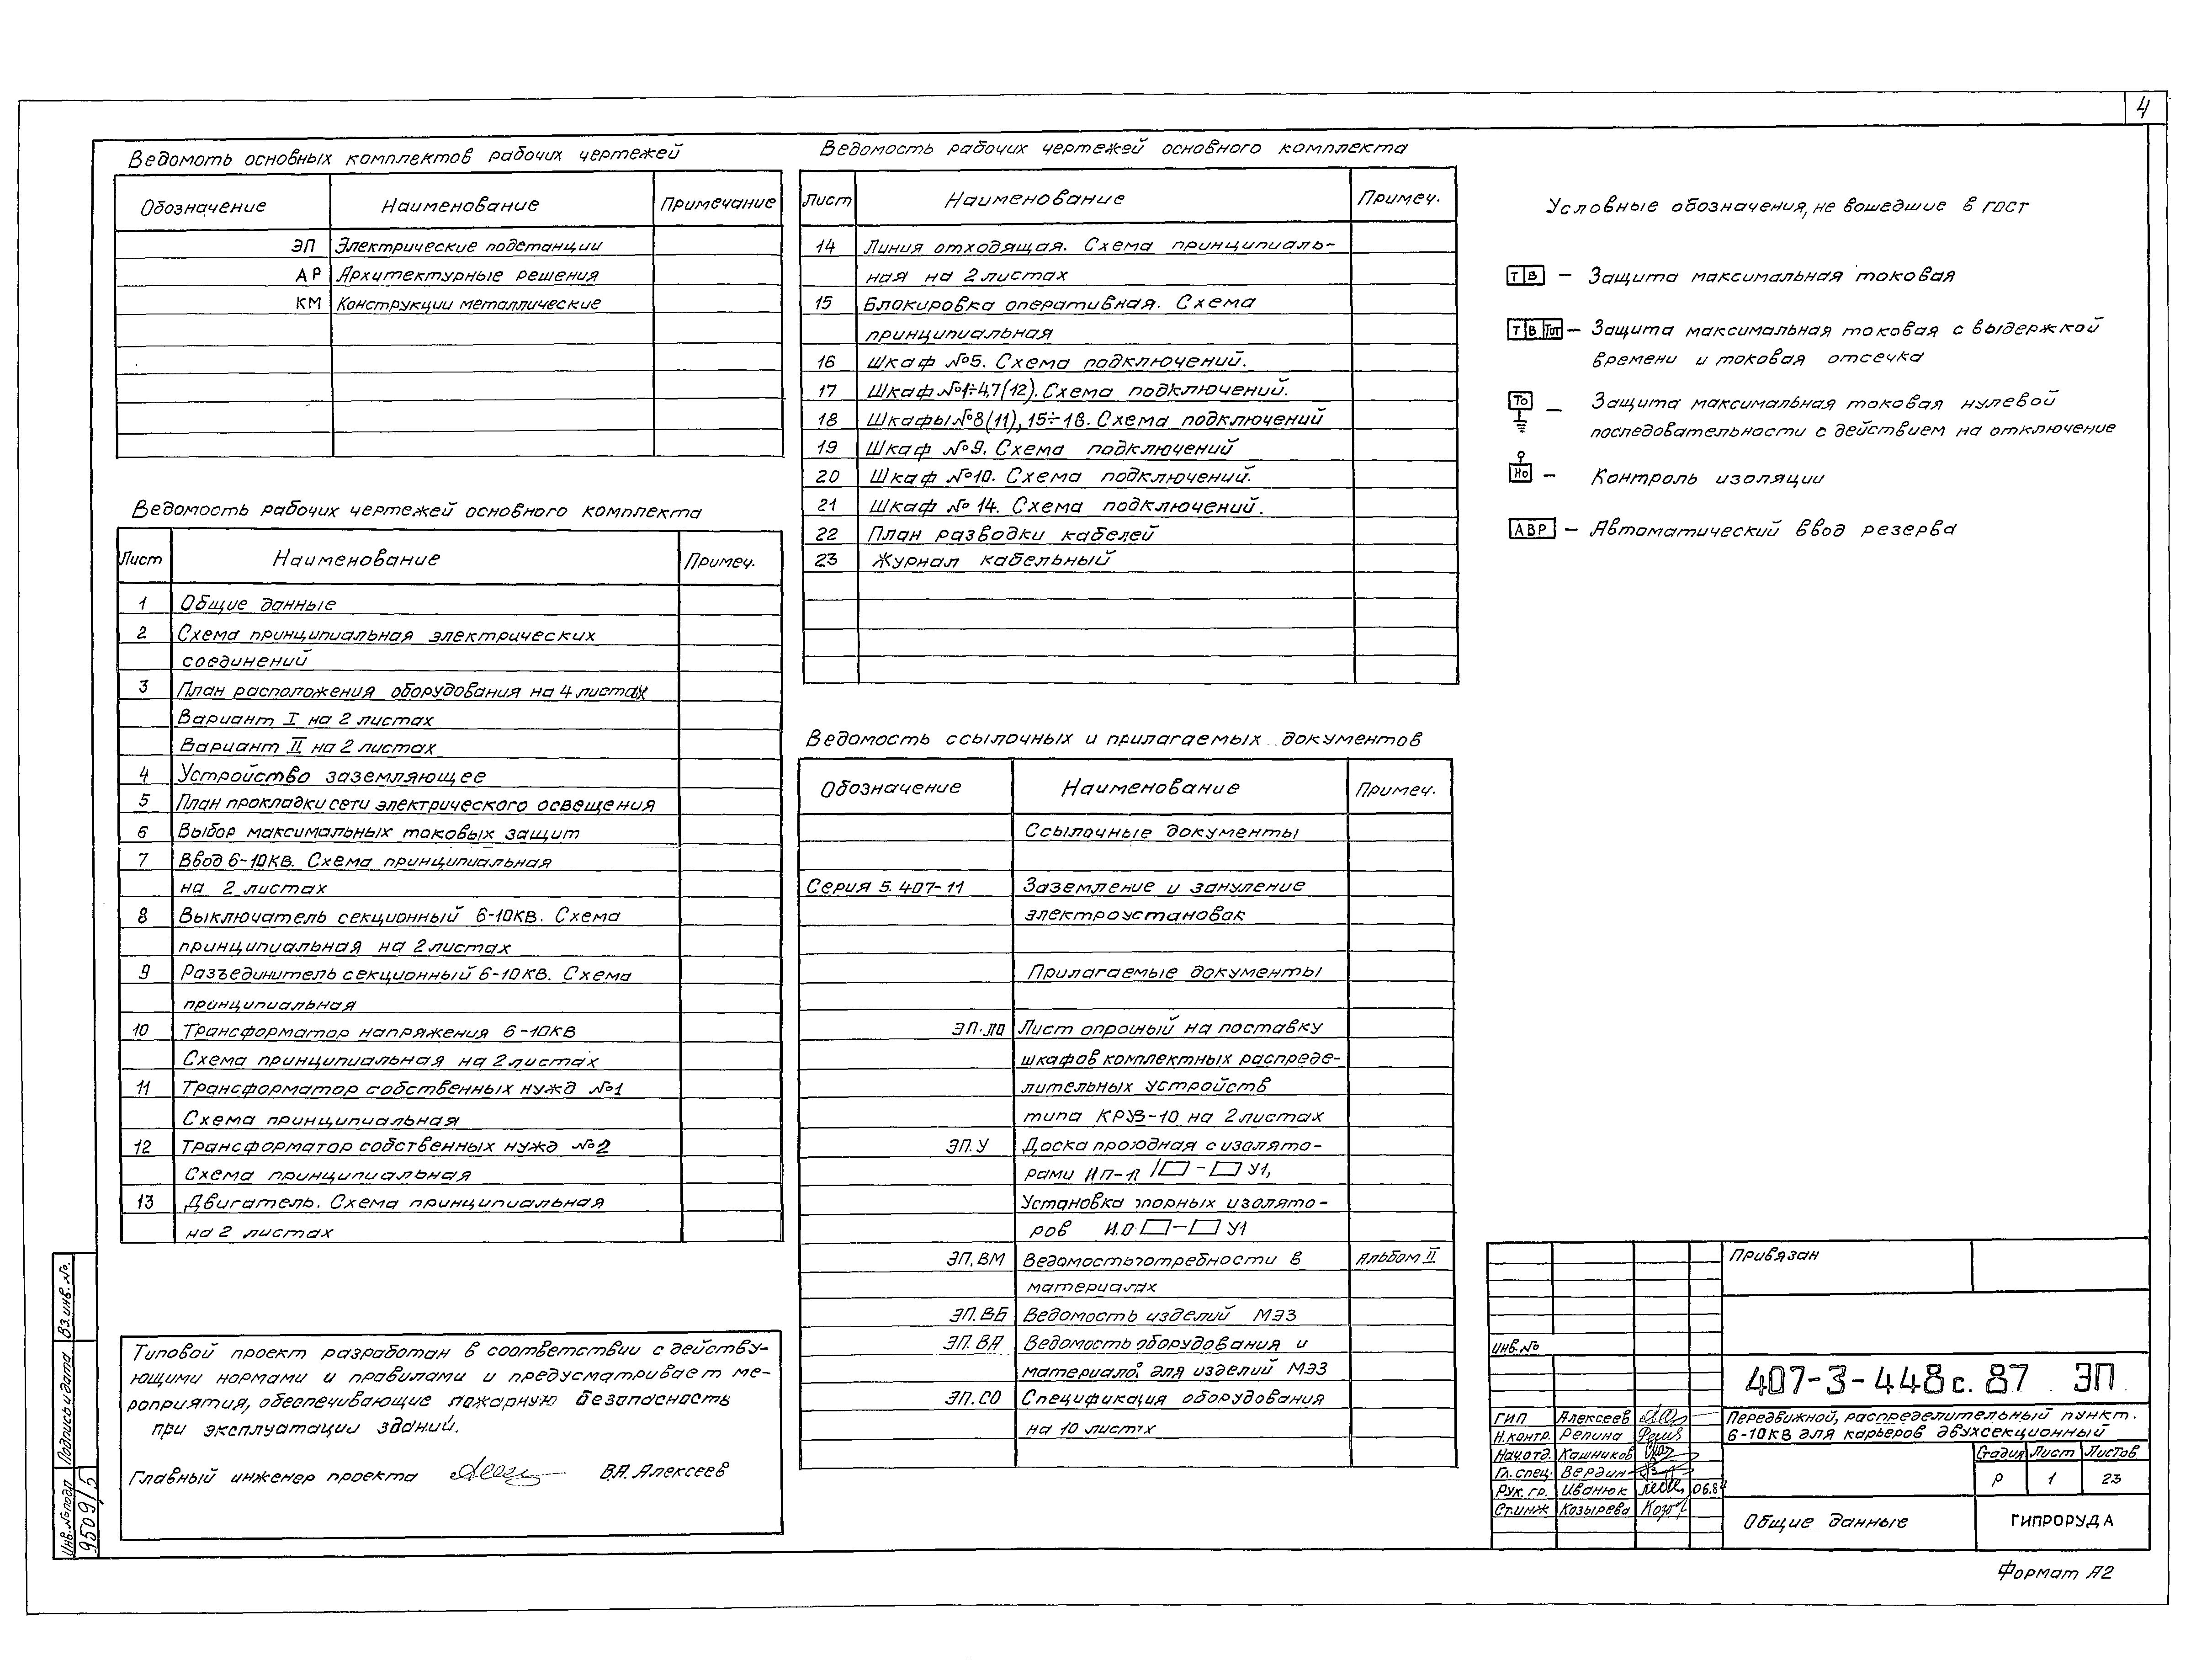 4
Ведомоть основных комплектов рабочих чертежей
Обозначение Наименование Примечание
ЭП Электрические подстанции
АР Архитектурные решения
КМ Конструкции металлические
Ведомость рабочих чертежей основного комплекта
Лист Наименование Примеч.
1 Общие данные
2 Схема принципиальная электрических
соединений
3 План расположения оборудования на 4 листах
Вариант I на 2 листах
Вариант II на 2 листах
4 Устройство заземляющее
5 План прокладки сети электрического освещения
6 Выбор максимальных токовых защит
7 Ввод 6-10кВ. Схема принципиальная
на 2 листах
8 Выключатель секционный 6-10кВ. Схема
принципиальная на 2 листах
9 Разъединитель секционный 6-10кВ. Схема
принципиальная
10 Трансформатор напряжения 6-10кВ
Схема принципиальная на 2 листах
11 Трансформатор собственных нужд №1
Схема принципиальная
12 Трансформатор собственных нужд №2
Схема принципиальная
13 Двигатель. Схема принципиальная
на 2 листах
Типовой проект разработан в соответствии с действу-
ющими нормами и правилами и предусматривает ме-
роприятия, обеспечивающие пожарную безопасность
при эксплуатации зданий.
Главный инженер проекта В.А. Алексеев
Ведомость рабочих чертежей основного комплекта
Лист Наименование Примеч.
14 Линия отходящая. Схема принципиаль-
ная на 2 листах
15 Блокировка оперативная. Схема
принципиальная
16 Шкаф №5. Схема подключений.
17 Шкаф №1÷4,7(12). Схема подключений.
18 Шкафы №8(11), 15÷18. Схема подключений
19 Шкаф №9. Схема подключений
20 Шкаф №10. Схема подключений.
21 Шкаф №14. Схема подключений.
22 План разводки кабелей
23 Журнал кабельный
Ведомость ссылочных и прилагаемых документов
Обозначение Наименование Примеч.
Ссылочные документы
Серия 5.407-11 Заземление и зануление
электроустановок
Прилагаемые документы
ЭП.ЛО Лист опросный на поставку
шкафов комплектных распреде-
лительных устройств
типа КРУВ-10 на 2 листах
ЭП.У Доска проходная с изолято-
рами ИП-П / - У1,
Установка опорных изолято-
ров И.О. - У1
ЭП.ВМ Ведомость потребности в Альбом II
материалах
ЭП.ВБ Ведомость изделий МЭЗ
ЭП.ВА Ведомость оборудования и
материалов для изделий МЭЗ
ЭП.СО Спецификация оборудования
на 10 листах
Условные обозначения, не вошедшие в ГОСТ
Т В – Защита максимальная токовая
Т В Тот – Защита максимальная токовая с выдержкой
времени и токовая отсечка
То – Защита максимальная токовая нулевой
последовательности с действием на отключение
Но – Контроль изоляции
АВР – Автоматический ввод резерва
Привязан
Инв.№
407-3-448с.87 ЭП
ГИП Алексеев
Н.контр. Репина
Нач.отд. Кашников
Гл.спец. Вердин
Рук.гр. Иванюк
Ст.инж Козырева
Передвижной, распределительный пункт.
6-10кВ для карьеров двухсекционный
Стадия Лист Листов
Р 1 23
Общие данные ГИПРОРУДА
Формат А2
Вз.инв.№.
Подпись и дата
Инв.№подл
9509/5